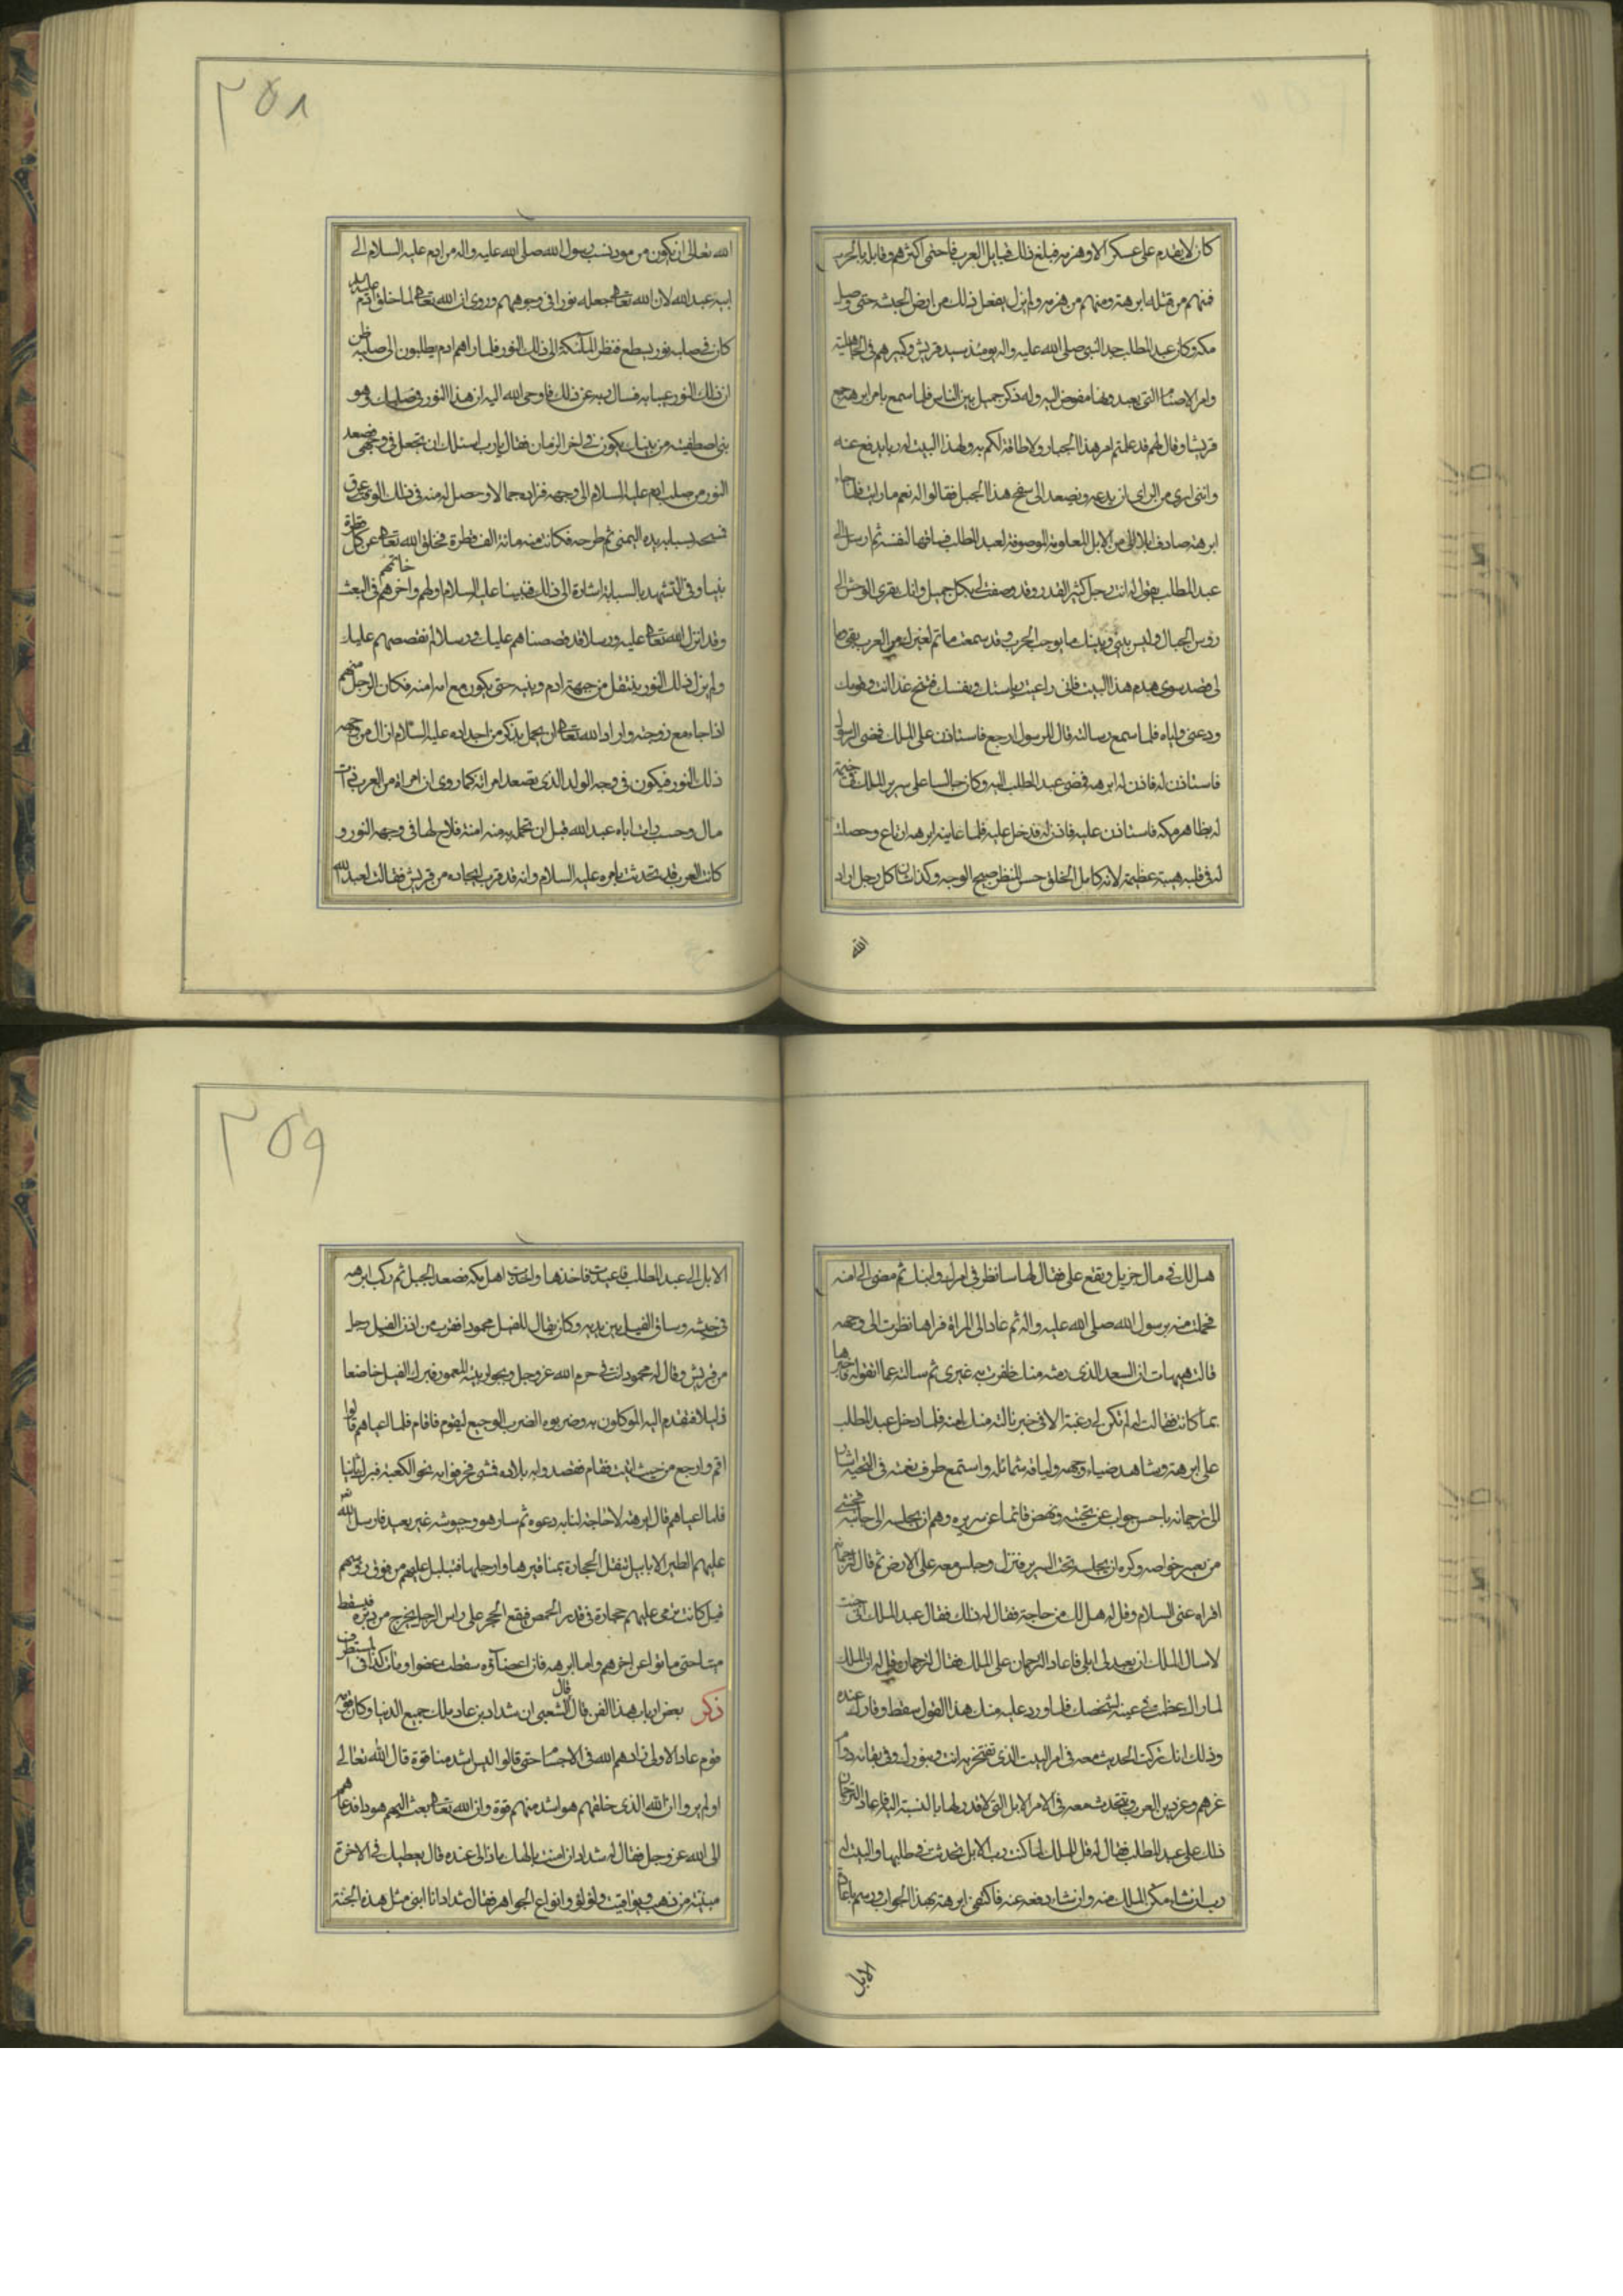 ٢٥٨
كان لا يقدم على عسكر الا وهزمه فبلغ ذلك قبايل العرب فاحتمى اكثرهم وقابله بالحرب
فمنهم من قتله ابرهة ومنهم من هزمه ولم يزل يفعل ذلك من ارض الحبشه حتى وصل
مكه وكان عبد المطلب جد النبي صلى الله عليه واله يومئذ سيد قريش وكبيرهم في الجاهلية
وامر الاصنام التي يعبدونها مفوض اليه وله ذكر جميل بين الناس فلما سمع بامر ابرهه جمع
قريشا وقال لهم قد علمتم امر هذا الجبار ولا طاقة لكم به ولهذا البيت له رب يدفع عنه
وانني ارى من الراي ان ندعه ونصعد الى سفح هذا الجبل فقالوا له نعم ما رايت فلما جاء
ابرهة صادف ابلا لي من الابل المعلومة الموصوفة لعبد المطلب فساقها لنفسه ثم ارسل الى
عبد المطلب يقول له انت رجل كثير القدر وقد وصفت لي بكل جميل وانك تقرى الوحش في
رؤس الجبال وليس بيني وبينك ما يوجب الحرب وقد سمعت ما تم لغيرك من العرب
لي قصد سوى هدم هذا البيت فاني راعيت رياستك ونفسك فتنح غدا انت وقومك
ودعني واياه فلما سمع رسالته قال للرسول ارجع فاستاذن على الملك فمضى الرسول
فاستاذن له فاذن له ابرهه فمضى عبد المطلب اليه وكان جالسا على سرير الملك في خيمة
له بظاهر مكه فاستاذن عليه فاذن له فدخل عليه فلما عاينه ابرهه ارتاع وحصلت
له في قلبه هيبة عظيمة لانه كامل الخلق حسن المنظر صبيح الوجه وكذلك كان كل رجل اراد
الله
الله تعالى ان يكون من مورد نسب رسول الله صلى الله عليه واله من ادم عليه السلام الى
ابيه عبد الله لان الله تعالى جعله نورا في وجوههم وروى ان الله تعالى لما خلق ادم عليه السلام
كان في صلبه نور يسطع فنظر الملائكة الى ذلك النور فلما راهم ادم يطلبون الى صلبه ظن
ان ذلك النور عيبا به فسال ربه عن ذلك فاوحى الله اليه ان هذا النور في صلبك وهو
نبي اصطفيته من بنيك يكون في اخر الزمان فقال يا رب اسئلك ان تجعل في وجهي فصعد
النور من صلب ادم عليه السلام الى وجهه فزاده جمالا وحصل له منه في ذلك الوقت عرق
فمسحه بسبابة يده اليمنى ثم طرحه فكانت منه مائة الف قطرة فخلق الله تعالى عن كل قطرة
نبيا وفي التشهد بالسبابة اشارة الى ذلك فنبينا عليه السلام اولهم واخرهم في البعث خاتمهم
وقد انزل الله تعالى عليه ورسلا قد قصصناهم عليك ورسلا لم نقصصهم عليك
ولم يزل ذلك النور ينتقل من جبهة ادم وبنيه حتى يكون مع امه امنه فكان الرجل منهم
اذا جامع زوجته واراد الله تعالى ان يحمل بذكر من اجداده عليه السلام زال من وجهه
ذلك النور فيكون في وجه الولد الذي تضعه امراته كما روى ان امراة من العرب ذات
مال وحسب رات اباه عبد الله قبل ان تحمل به منه امنة فلاح لها في وجهه النور و
كانت العرب قد تحدثت بامره عليه السلام وانه قد قرب ايجاده من قريش فقالت لعبد الله
٢٥٩
هل لك في مال جزيل وتقع علي فقال لها سانظر في امرك وابنك ثم مضى الى امنه
فحملت منه برسول الله صلى الله عليه واله ثم عاد الى المراة فراها نظرت الى وجهه
قالت هيهات ان السعد الذي رمته منك ظفرت به غيري ثم سالته عما اتفق له فاخبرها
بما كانت فقالت له لم تكن لي رغبة الا في خير نالته منك امنه فلما دخل عبد المطلب
على ابرهة وشاهد ضياء وجهه ولياقة شمائله واستمع طرف نغمته في التحية اشار
الى ترجمانه باحسن جواب عن تحيته ونهض قائما عن سريره وهم ان يجلسه الى جانبه فخشى
من بعض خواصه وكره ان يجلسه تحت السرير فنزل وجلس معه على الارض ثم قال لترجمانه
اقراه عني السلام وقل له هل لك من حاجة فقال له ذلك فقال عبد المطلب اني جئت
لاسال الملك ان يعيد لي ابلي فاعاد الترجمان على الملك فقال للترجمان قل له ان الملك
لما راك عظمت في عينه لشخصك فلما ورد عليه منك هذا القول سقط وقارك عنده
وذلك انك تركت الحديث معه في امر البيت الذي تفتخر به انت وبنوك وفي بقائه دوام
عزهم وعز دين العرب وتتحدث معه في الامر الابل التي لا قدر لها بالنسبة اليه فاعاد الترجمان
ذلك على عبد المطلب فقال له قل للملك انا كنت رب الابل تحدثت في طلبها والبيت له
رب ان شاء مكن الملك منه وان شاء دفعه عنه فاكتفى ابرهة بهذا الجواب ورسم باعادة
الابل
الابل الى عبد المطلب فاعيدت فاخذها واخذت اهل مكه فصعد الجبل ثم ركب ابرهه
في جيشه وساق الفيل بين يديه وكان يقال للفيل محمود فقرب من اذن الفيل رجل
من قريش وقال له محمود انت في حرم الله عز وجل وبجوار بيته المعمور فبرك الفيل خاضعا
ذليلا فتقدم اليه الموكلون به وضربوه الضرب الوجيع ليقوم فاقام فلما اعياهم قالوا
اقم وارجع من حيث اتيت فقام فقصدوا به بلاده فمشى فحرفوا به نحو الكعبة فبرك ثانيا
فلما اعياهم قال ابرهة لا حاجة لنا به دعوه ثم سار هو وجيوشه غير بعيد فارسل الله
عليهم الطير الابابيل تنقل الحجارة بمناقيرها وارجلها فتبلبل عليهم من فوق رؤسهم
قيل كانت ترمى عليهم حجارة في قدر الحمص فيقع الحجر على راس الرجل يخرج من دبره فيسقط
ميتا حتى ماتوا عن اخرهم واما ابرهه فان اعضاؤه سقطت عضوا ومات كذا في المستطرف
ذكر بعض ارباب هذا الفن قال قال الشعبي ان شداد بن عاد ملك جميع الدنيا وكان قومه
قوم عاد الاولى زادهم الله في الاجسام حتى قالوا اليس اشد منا قوة قال الله تعالى
اولم يروا ان الله الذي خلقهم هو اشد منهم قوة وان الله تعالى بعث اليهم هودا فدعاهم
الى الله عز وجل فقال له شداد ان امنت بالهك ماذا لي عنده قال يعطيك في الاخرة
مبنية من ذهب ويواقيت ولؤلؤ وانواع الجواهر فقال شداد انا ابني مثل هذه الجنة